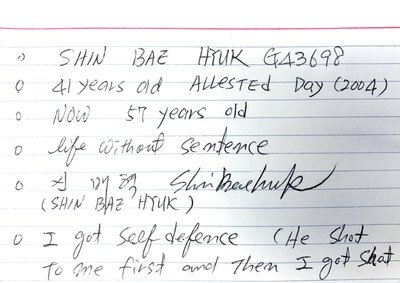 SHIN BAE HYUK G43698
41 years old ALLESTED Day (2004)
NOW 57 years old
life without sentence
신 배 혁
(SHIN BAE HYUK)
I got self defence (He shot
to me first and then I got shot